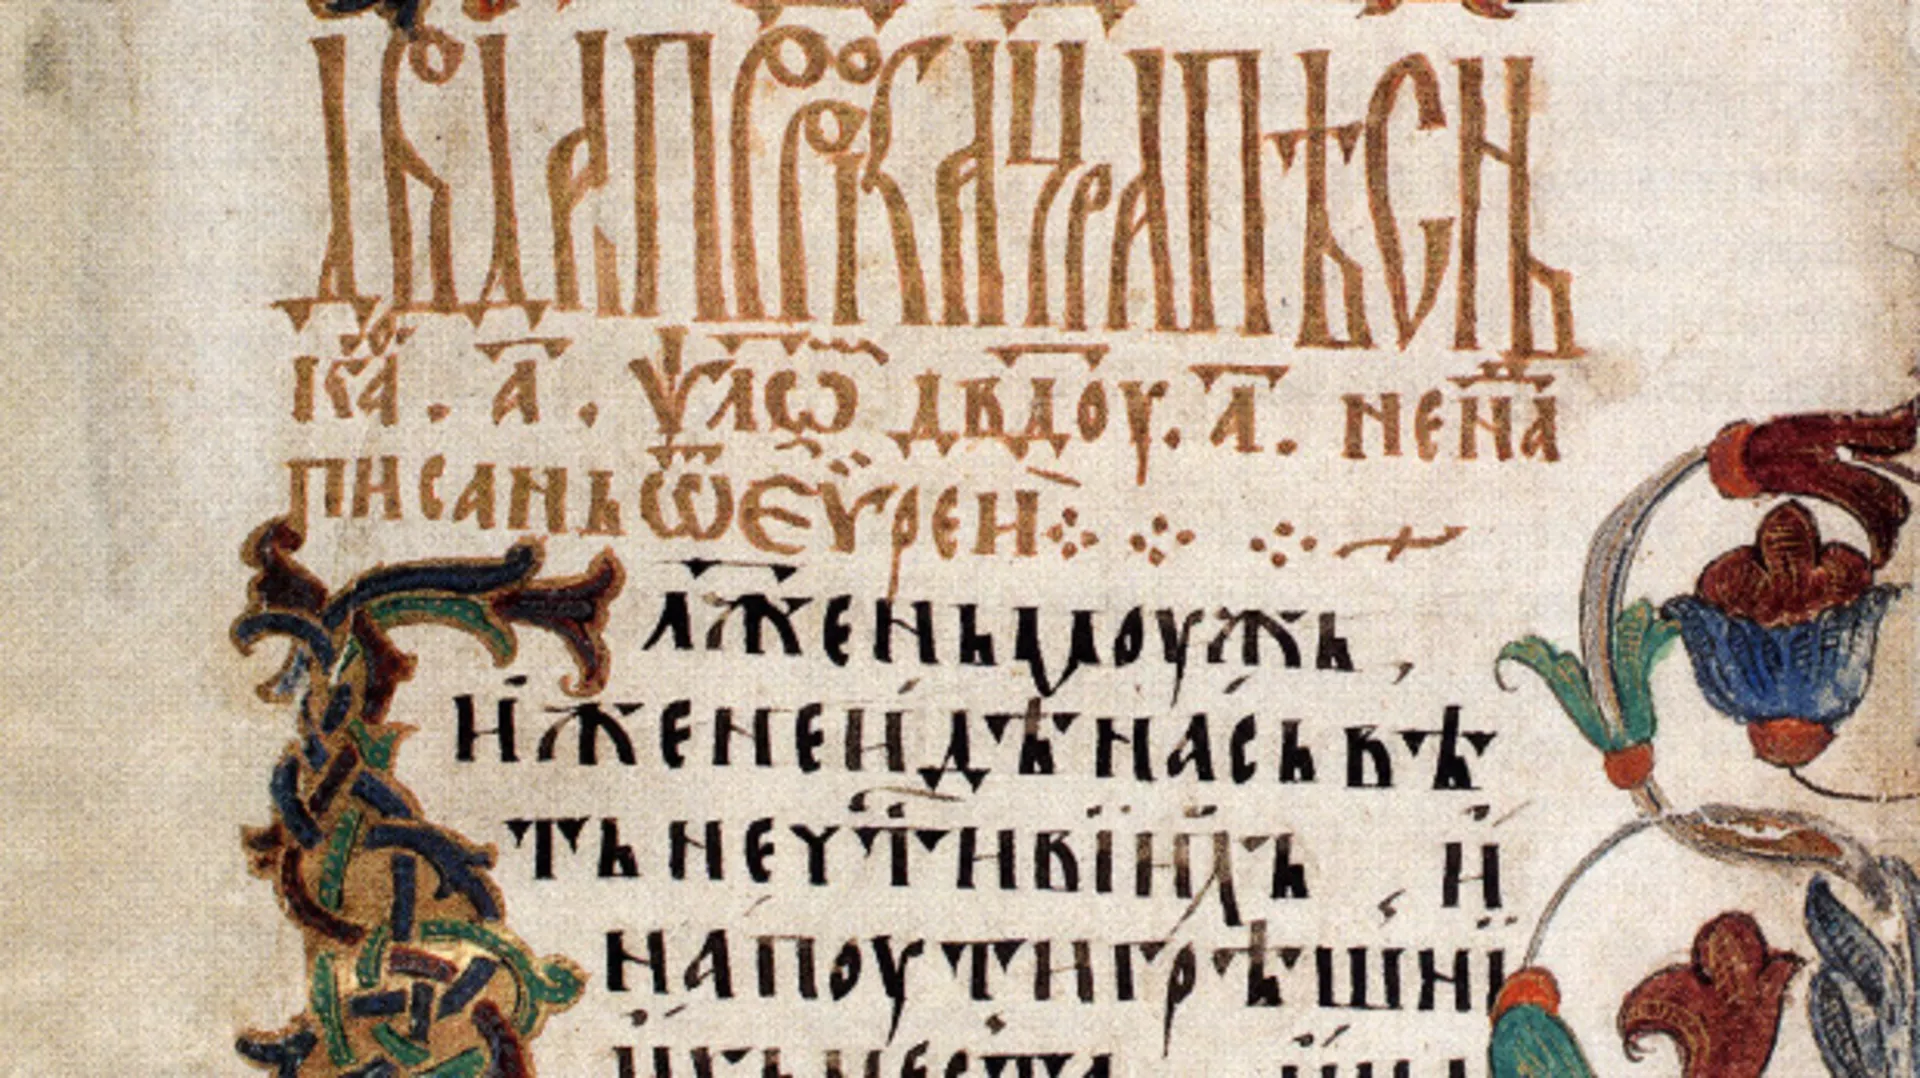 Дв҃да пр҇ѻрока и цр҃ѧ пѣснь
каѳ҇ . а҃ . ѱл҃ѡм дв҃доу . а҃ . нена
писань ѿ еѵреи ⁘ ⁘ ⁘ ~
Бл҃жень моужь
иже не иде на сьвѣ
ть неч҇тивіиⷯь и
на поути грѣшні